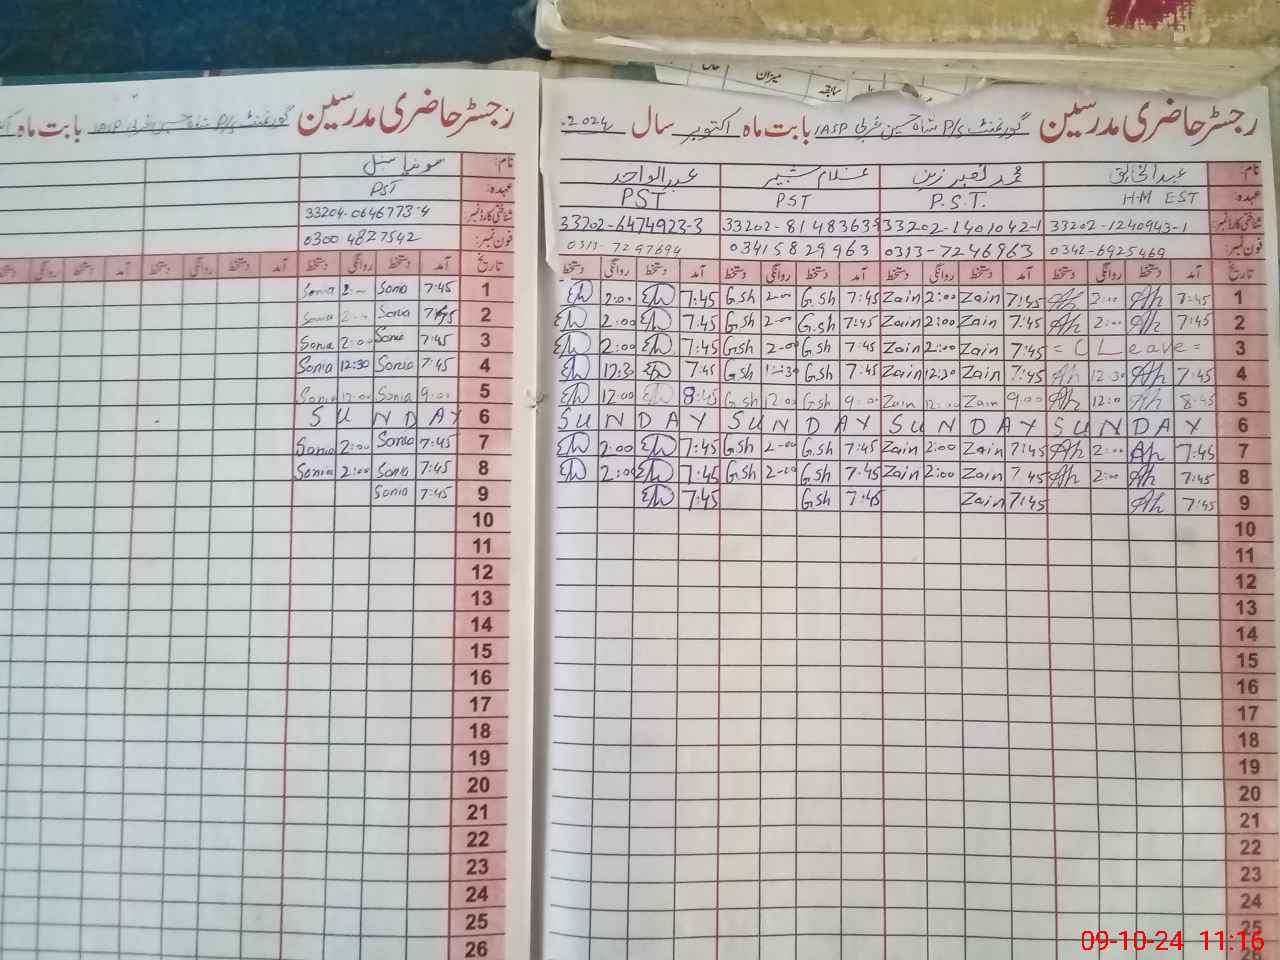 میزان
سابقہ
رجسٹر حاضری مدرسین گورنمنٹ P/S شاہ حسین غربی IASP بابت ماہ اکتوبر سال 2024.
نام: عبدالخالق محمد زین غلام شبیر عبدالواحد
عہدہ: HM EST P.S.T. PST PST
شناختی کارڈ نمبر: 33202-1240943-1 33202-1401042-1 33202-8148363-9 33202-6474923-3
فون نمبر: 0342-6925469 0313-7246963 03415829963 0313-7297694
تاریخ آمد دستخط روانگی دستخط آمد دستخط روانگی دستخط آمد دستخط روانگی دستخط آمد دستخط روانگی دستخط
1 7:45 Ah 2:00 Ah 7:45 Zain 2:00 Zain 7:45 G.sh 2-00 G.sh 7:45 2:00
2 7:45 Ah 2:00 Ah 7:45 Zain 2:00 Zain 7:45 G.sh 2-00 G.sh 7:45 2:00
3 = C Leave = 7:45 Zain 2:00 Zain 7:45 G.sh 2-00 G.sh 7:45 2:00
4 7:45 Ah 12:30 Ah 7:45 Zain 12:30 Zain 7:45 G.sh 12:30 G.sh 7:45 12:30
5 8:45 Ah 12:00 Ah 9:00 Zain 12:00 Zain 9:00 Gsh 12:00 G.sh 8:45 12:00
6 SUNDAY SUNDAY SUNDAY SUNDAY
7 7:45 Ah 2:00 Ah 7:45 Zain 2:00 Zain 7:45 G.sh 2-00 G.sh 7:45 2:00
8 7:45 Ah 2:00 Ah 7:45 Zain 2:00 Zain 7:45 G.sh 2-00 G.sh 7:45 2:00
9 7:45 Ah 7:45 Zain 7:45 G.sh 7:45
10
11
12
13
14
15
16
17
18
19
20
21
22
23
24
25
رجسٹر حاضری مدرسین گورنمنٹ P/S شاہ حسین غربی IASP بابت ماہ
نام: سونیا سنبل
عہدہ: PST
شناختی کارڈ نمبر: 33204-0646773-4
فون نمبر: 0300 4827542
تاریخ آمد دستخط روانگی دستخط آمد دستخط روانگی دستخط آمد دستخط روانگی دستخط
1 7:45 Sonia 2:00 Sonia
2 7:45 Sonia 2:00 Sonia
3 7:45 Sonia 2:00 Sonia
4 7:45 Sonia 12:30 Sonia
5 9:00 Sonia 12:00 Sonia
6 SUNDAY
7 7:45 Sonia 2:00 Sonia
8 7:45 Sonia 2:00 Sonia
9 7:45 Sonia
10
11
12
13
14
15
16
17
18
19
20
21
22
23
24
25
26
09-10-24 11:16